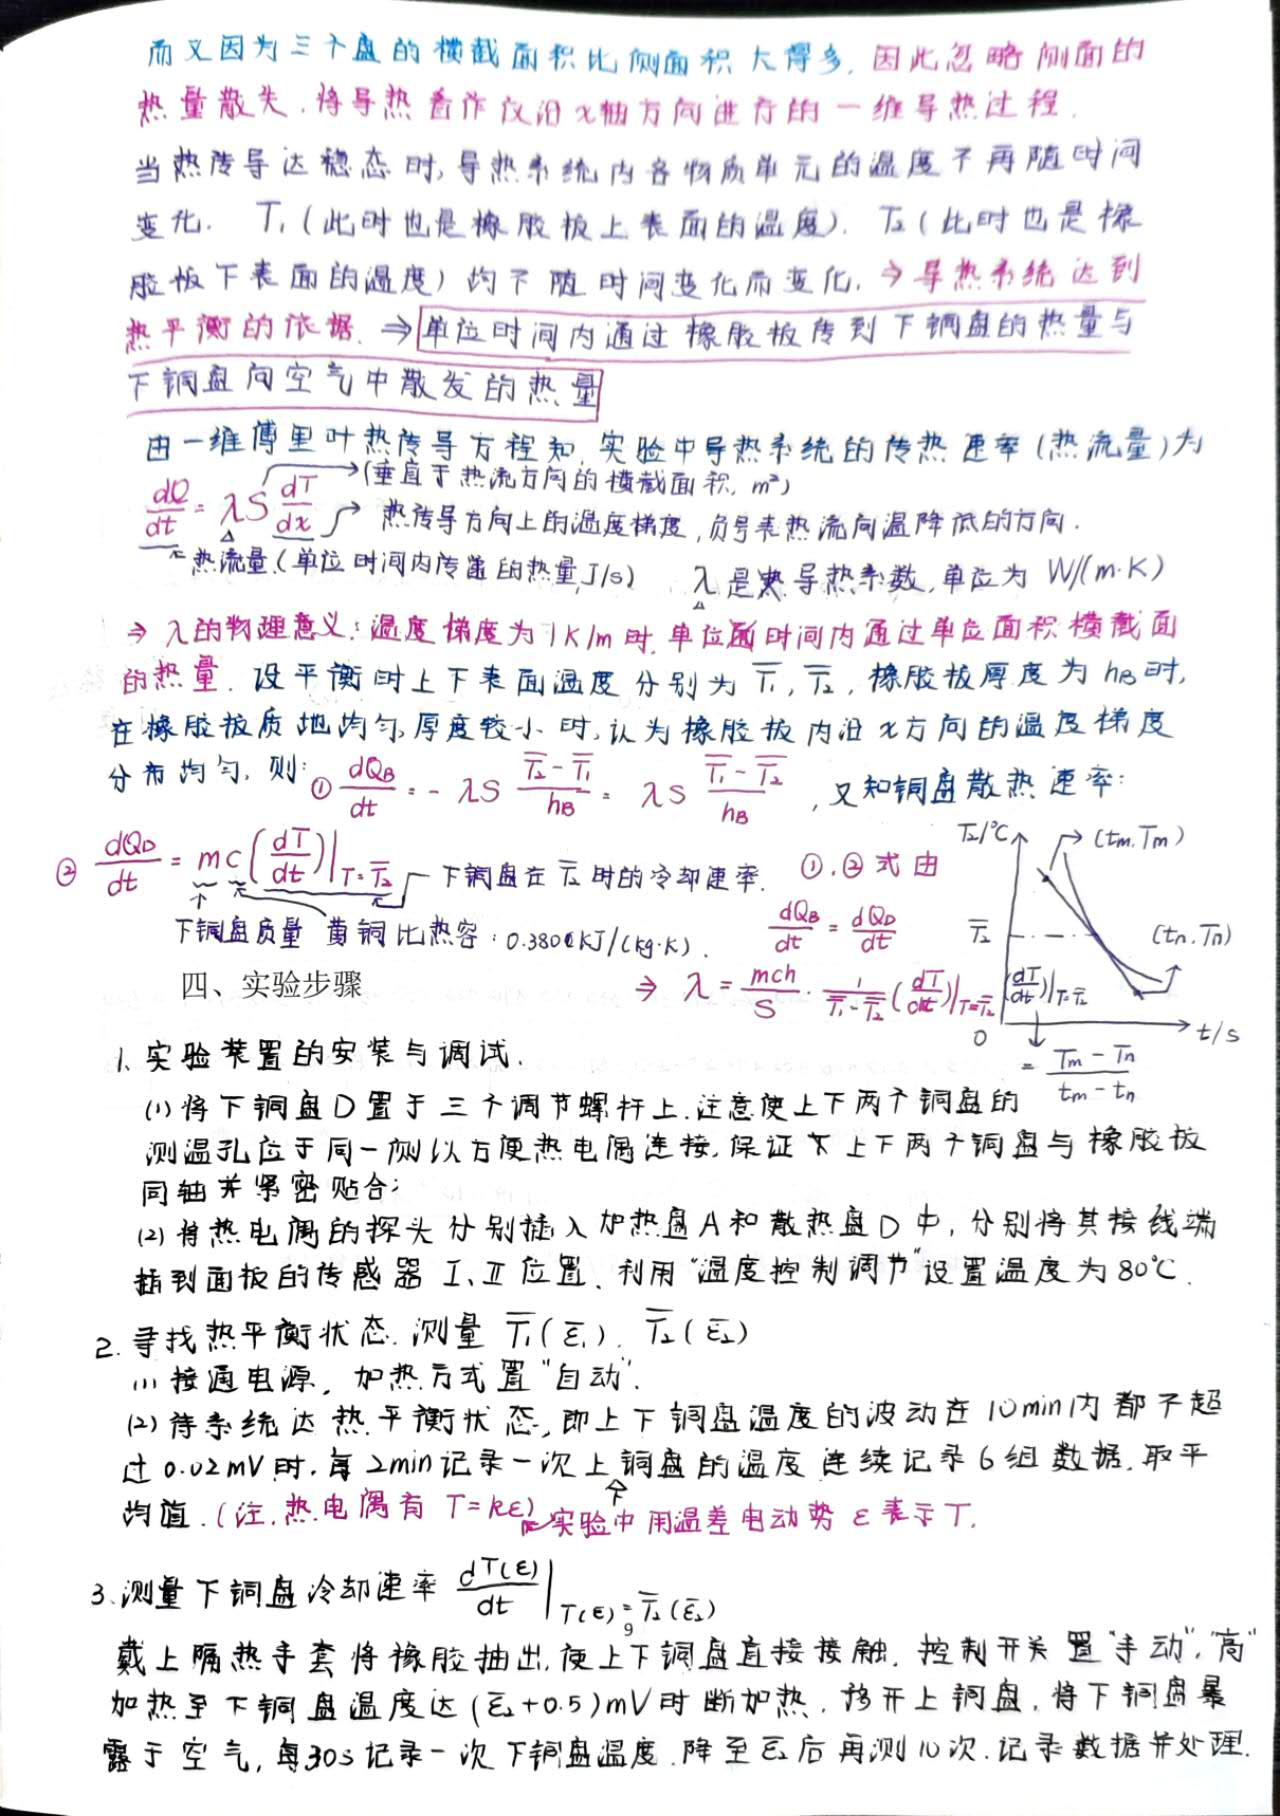 而又因为三个盘的横截面积比侧面积大得多,因此忽略侧面的
热量散失.将导热看作仅沿x轴方向进行的一维导热过程.
当热传导达稳态时,导热系统内各物质单元的温度不再随时间
变化. T₁(此时也是橡胶板上表面的温度). T₂(此时也是橡
胶板下表面的温度)均不随时间变化而变化. ⇒导热系统达到
热平衡的依据. ⇒单位时间内通过橡胶板传到下铜盘的热量与
下铜盘向空气中散发的热量
由一维傅里叶热传导方程知,实验中导热系统的传热速率(热流量)为
→(垂直于热流方向的横截面积, m²)
dQ/dt = λS dT/dx → 热传导方向上的温度梯度,负号表热流向温降低的方向.
热流量(单位时间内传递的热量J/s) λ是导热系数,单位为 W/(m·K)
⇒ λ的物理意义:温度梯度为1K/m时,单位时间内通过单位面积横截面
的热量. 设平衡时上下表面温度分别为 T̅₁, T̅₂, 橡胶板厚度为 hB时,
在橡胶板质地均匀,厚度较小时,认为橡胶板内沿x方向的温度梯度
分布均匀, 则: ① dQB/dt = -λS (T̅₂-T̅₁)/hB = λS (T̅₁-T̅₂)/hB , 又知铜盘散热速率:
② dQD/dt = mc(dT/dt)|T=T̅₂ 下铜盘在T̅₂时的冷却速率.
下铜盘质量 黄铜比热容: 0.380 kJ/(kg·K).
①,②式由
dQB/dt = dQD/dt
⇒ λ = mch/S · 1/(T̅₁-T̅₂) (dT/dt)|T=T̅₂
T₂/℃
(tm,Tm)
T̅₂
(tn,Tn)
(dT/dt)|T=T̅₂
0
t/s
= (Tm-Tn)/(tm-tn)
四、实验步骤
1、实验装置的安装与调试.
(1)将下铜盘D置于三个调节螺杆上.注意使上下两个铜盘的
测温孔位于同一侧以方便热电偶连接,保证上下两个铜盘与橡胶板
同轴并紧密贴合;
(2)将热电偶的探头分别插入加热盘A和散热盘D中,分别将其接线端
插到面板的传感器Ⅰ、Ⅱ位置、利用"温度控制调节"设置温度为80℃.
2.寻找热平衡状态.测量 T̅₁(ε̅₁). T̅₂(ε̅₂)
(1)接通电源,加热方式置"自动".
(2)待系统达热平衡状态,即上下铜盘温度的波动在10min内都不超
过0.02mV时.每2min记录一次上下铜盘的温度 连续记录6组数据.取平
均值.(注.热电偶有 T=kε) 实验中用温差电动势ε表示T.
3、测量下铜盘冷却速率 dT(ε)/dt |T(ε)=T̅₂(ε̅₂)
9
戴上隔热手套将橡胶抽出,使上下铜盘直接接触.控制开关置"手动","高"
加热至下铜盘温度达(ε̅₂+0.5)mV时断加热.移开上铜盘.将下铜盘暴
露于空气,每30s记录一次下铜盘温度.降至ε̅₂后再测10次.记录数据并处理.